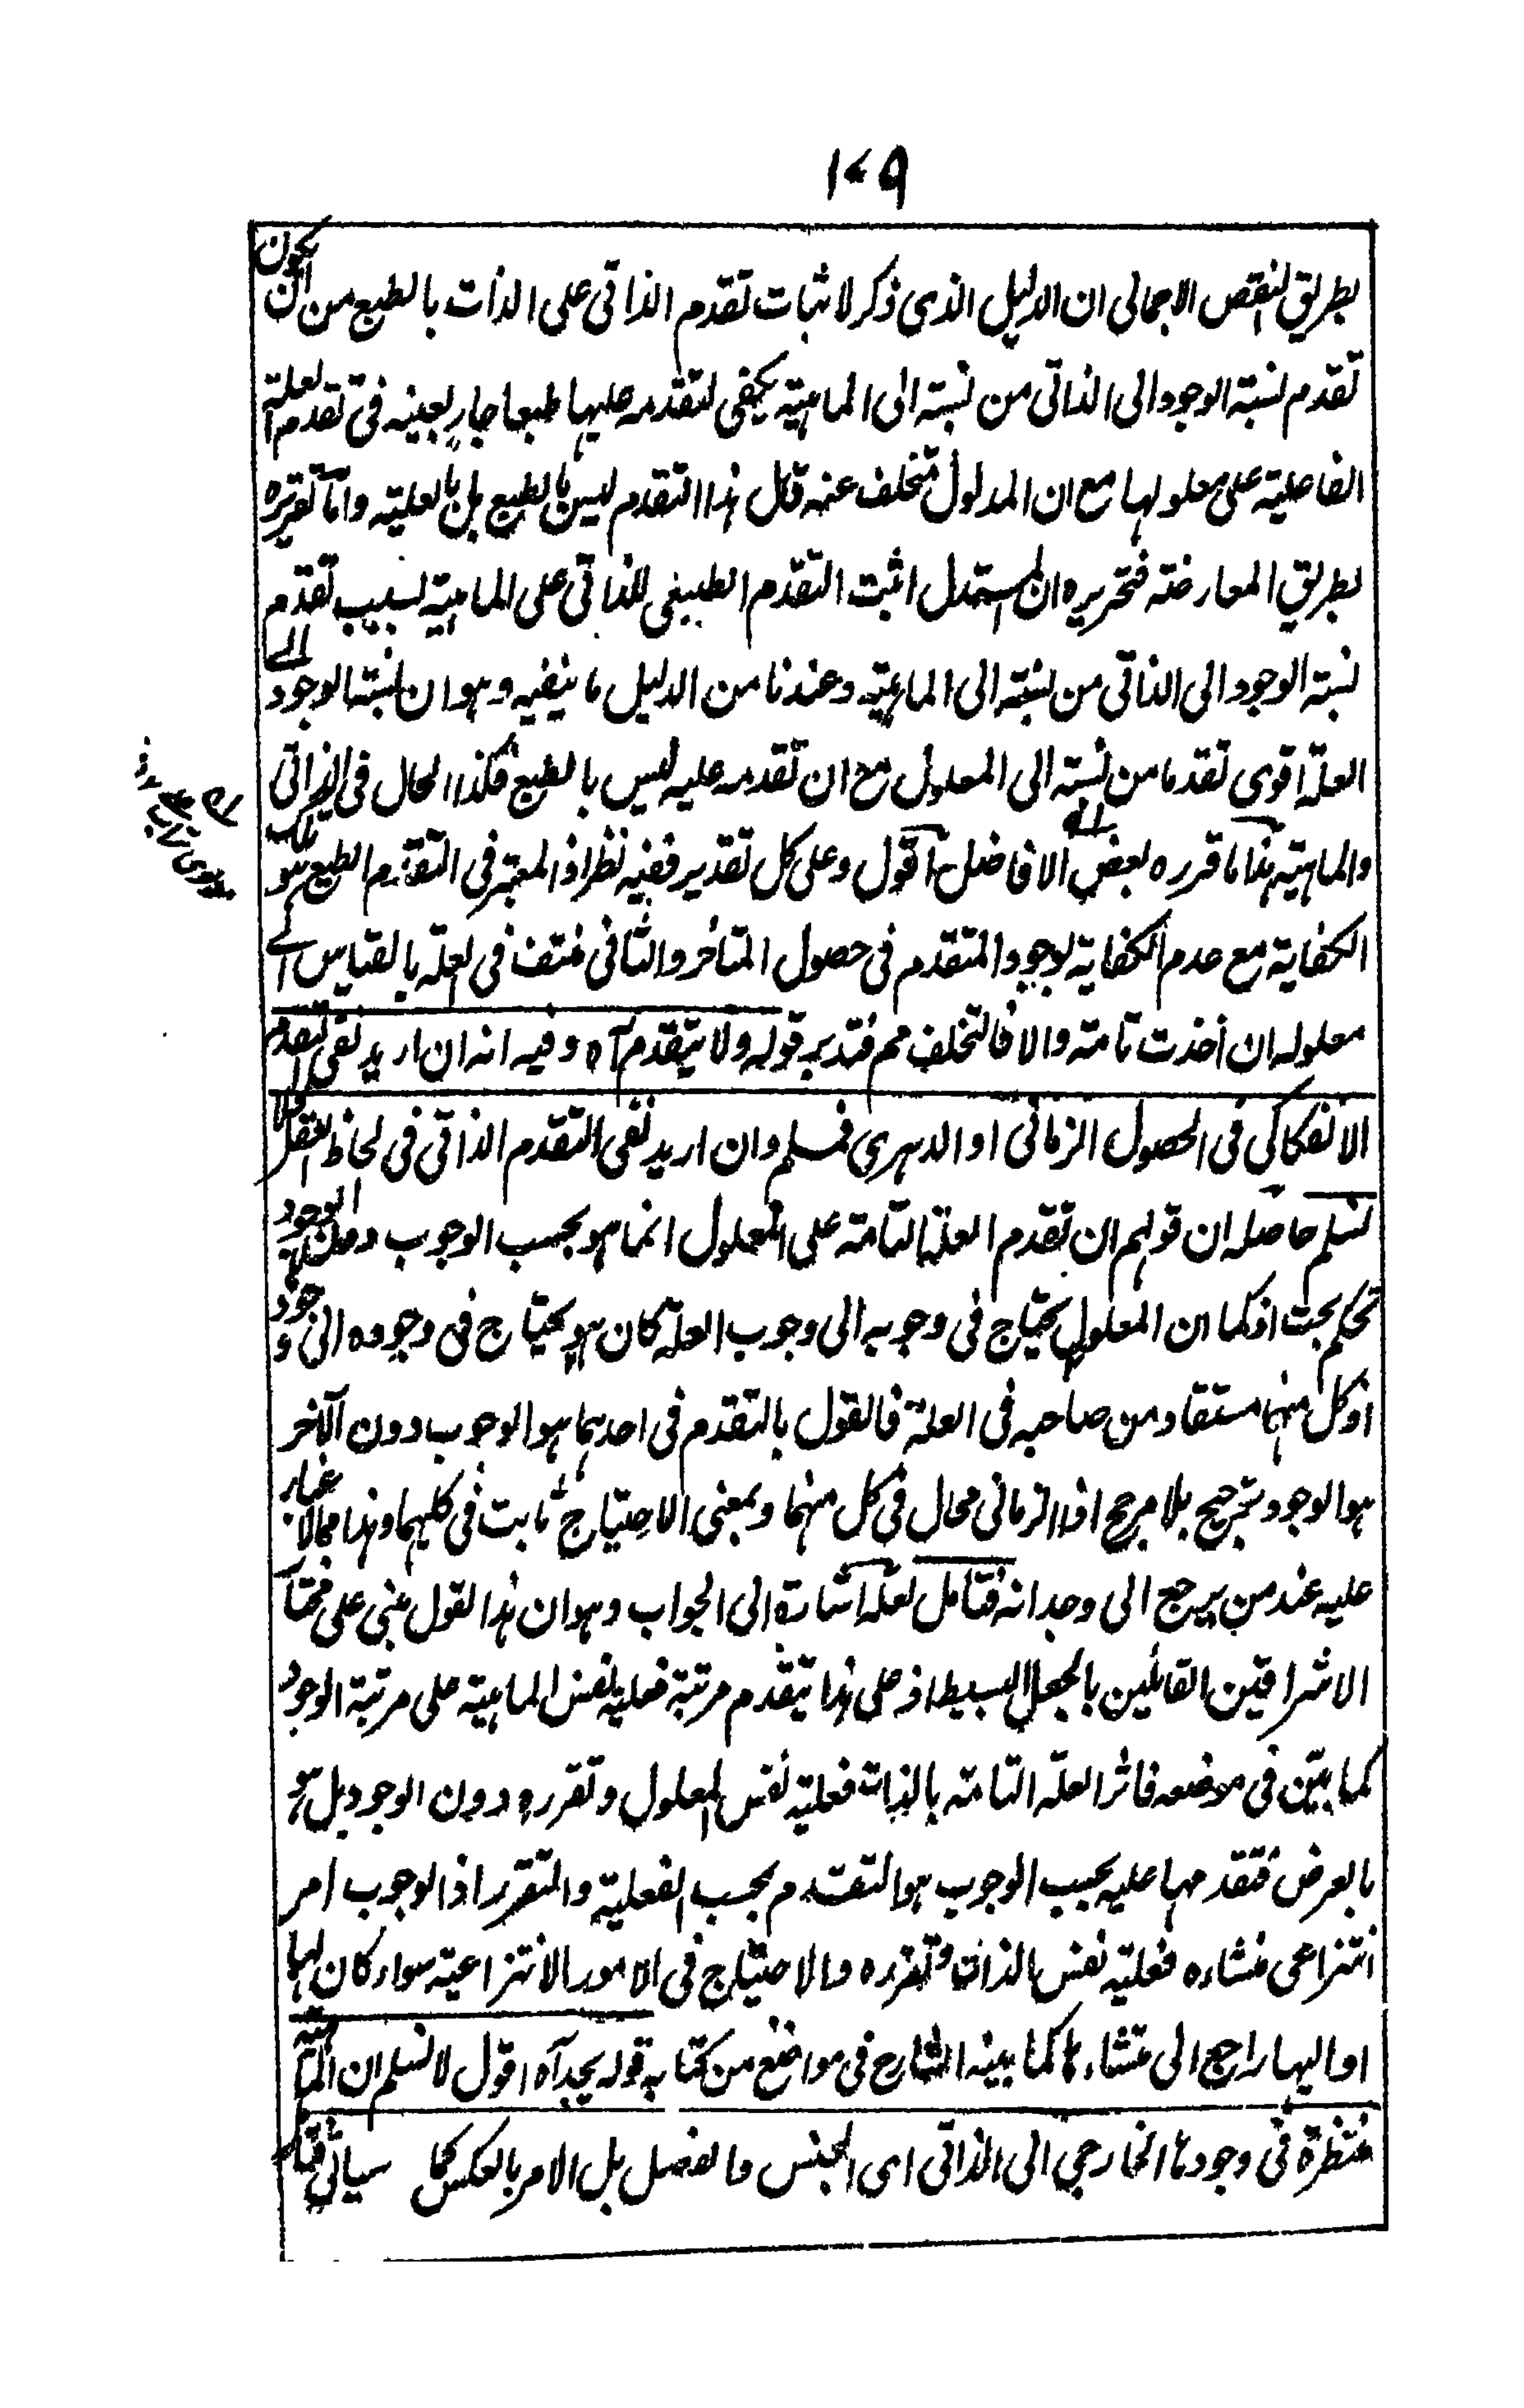 ١٧٩
بطريق النقض الاجمالى ان الدليل الذى ذكر لاثبات تقدم الذاتى على الذات بالطبع من ان يكون
تقدم نسبة الوجود الى الذاتى من نسبته الى الماهية يكفى لتقدمه عليها طبعا جارٍ بعينه فى تقدم العلة
الفاعلية على معلولها مع ان المدلول متخلف عنه قال هذا التقدم ليس بالطبع بل بالعلية واما تقريره
بطريق المعارضة فتحريره ان المستدل اثبت التقدم الطبيعى للذاتى على الماهية بسبب تقدم
نسبة الوجود الى الذاتى من نسبته الى الماهية وعندنا من الدليل ما ينفيه وهو ان نسبة الوجود الى
العلة اقوى تقدما من نسبته الى المعلول مع ان تقدمه عليه ليس بالطبع فكذا الحال فى الذاتى
والماهية هذا ما قرره بعض الافاضل اقول وعلى كل تقدير ففيه نظر اذ المعتبر فى التقدم الطبع هو تلك
الكفاية مع عدم الكفاية لوجود المتقدم فى حصول المتاخر والثانى منتف فى العلة بالقياس الى
معلوله ان اخذت تامة والا فالتخلف مم فتدبر قوله ولا يتقدم آه وفيه انه ان اريد نفى التقدم
الانفكاكى فى الحصول الزمانى او الدهرى فمسلم وان اريد نفى التقدم الذاتى فى لحاظ العقل فلا
نسلم حاصله ان قولهم ان تقدم العلة التامة على المعلول انما هو بحسب الوجوب دون الوجود
تحكم بحت اذ كما ان المعلول يحتاج فى وجوبه الى وجوب العلة كان هو يحتاج فى وجوده الى وجود
اذ كل منهما مستفاد من صاحبه فى العلة فالقول بالتقدم فى احدهما هو الوجوب دون الآخر
هو الوجود ترجيح بلا مرجح اذ الزمانى محال فى كل منهما وبمعنى الاحتياج ثابت فى كليهما وهذا مما لا غبار
عليه عند من يرجع الى وجدانه فتامل لعله اشارة الى الجواب وهو ان هذا القول مبنى على مختار
الاشراقيين القائلين بالجعل البسيط اذ على هذا يتقدم مرتبة فعلية نفس الماهية على مرتبة الوجود
كما بيّن فى موضعه فاثر العلة التامة بالذات فعلية نفس المعلول وتقرره دون الوجود بل هو
بالعرض فتقدمها عليه بحسب الوجوب هو التقدم بحسب الفعلية والتقرر اذ الوجوب امر
انتزاعى منشاءه فعلية نفس الذات وتقرره والاحتياج فى الامور الانتزاعية سواء كان لها
او اليها راجع الى منشاءها كما بينه الشارح فى مواضع من كتابه قوله يجد آه اقول لا نسلم ان الماهية
منتظرة فى وجودها الخارجى الى الذاتى اى الجنس والفصل بل الامر بالعكس كما سياتى